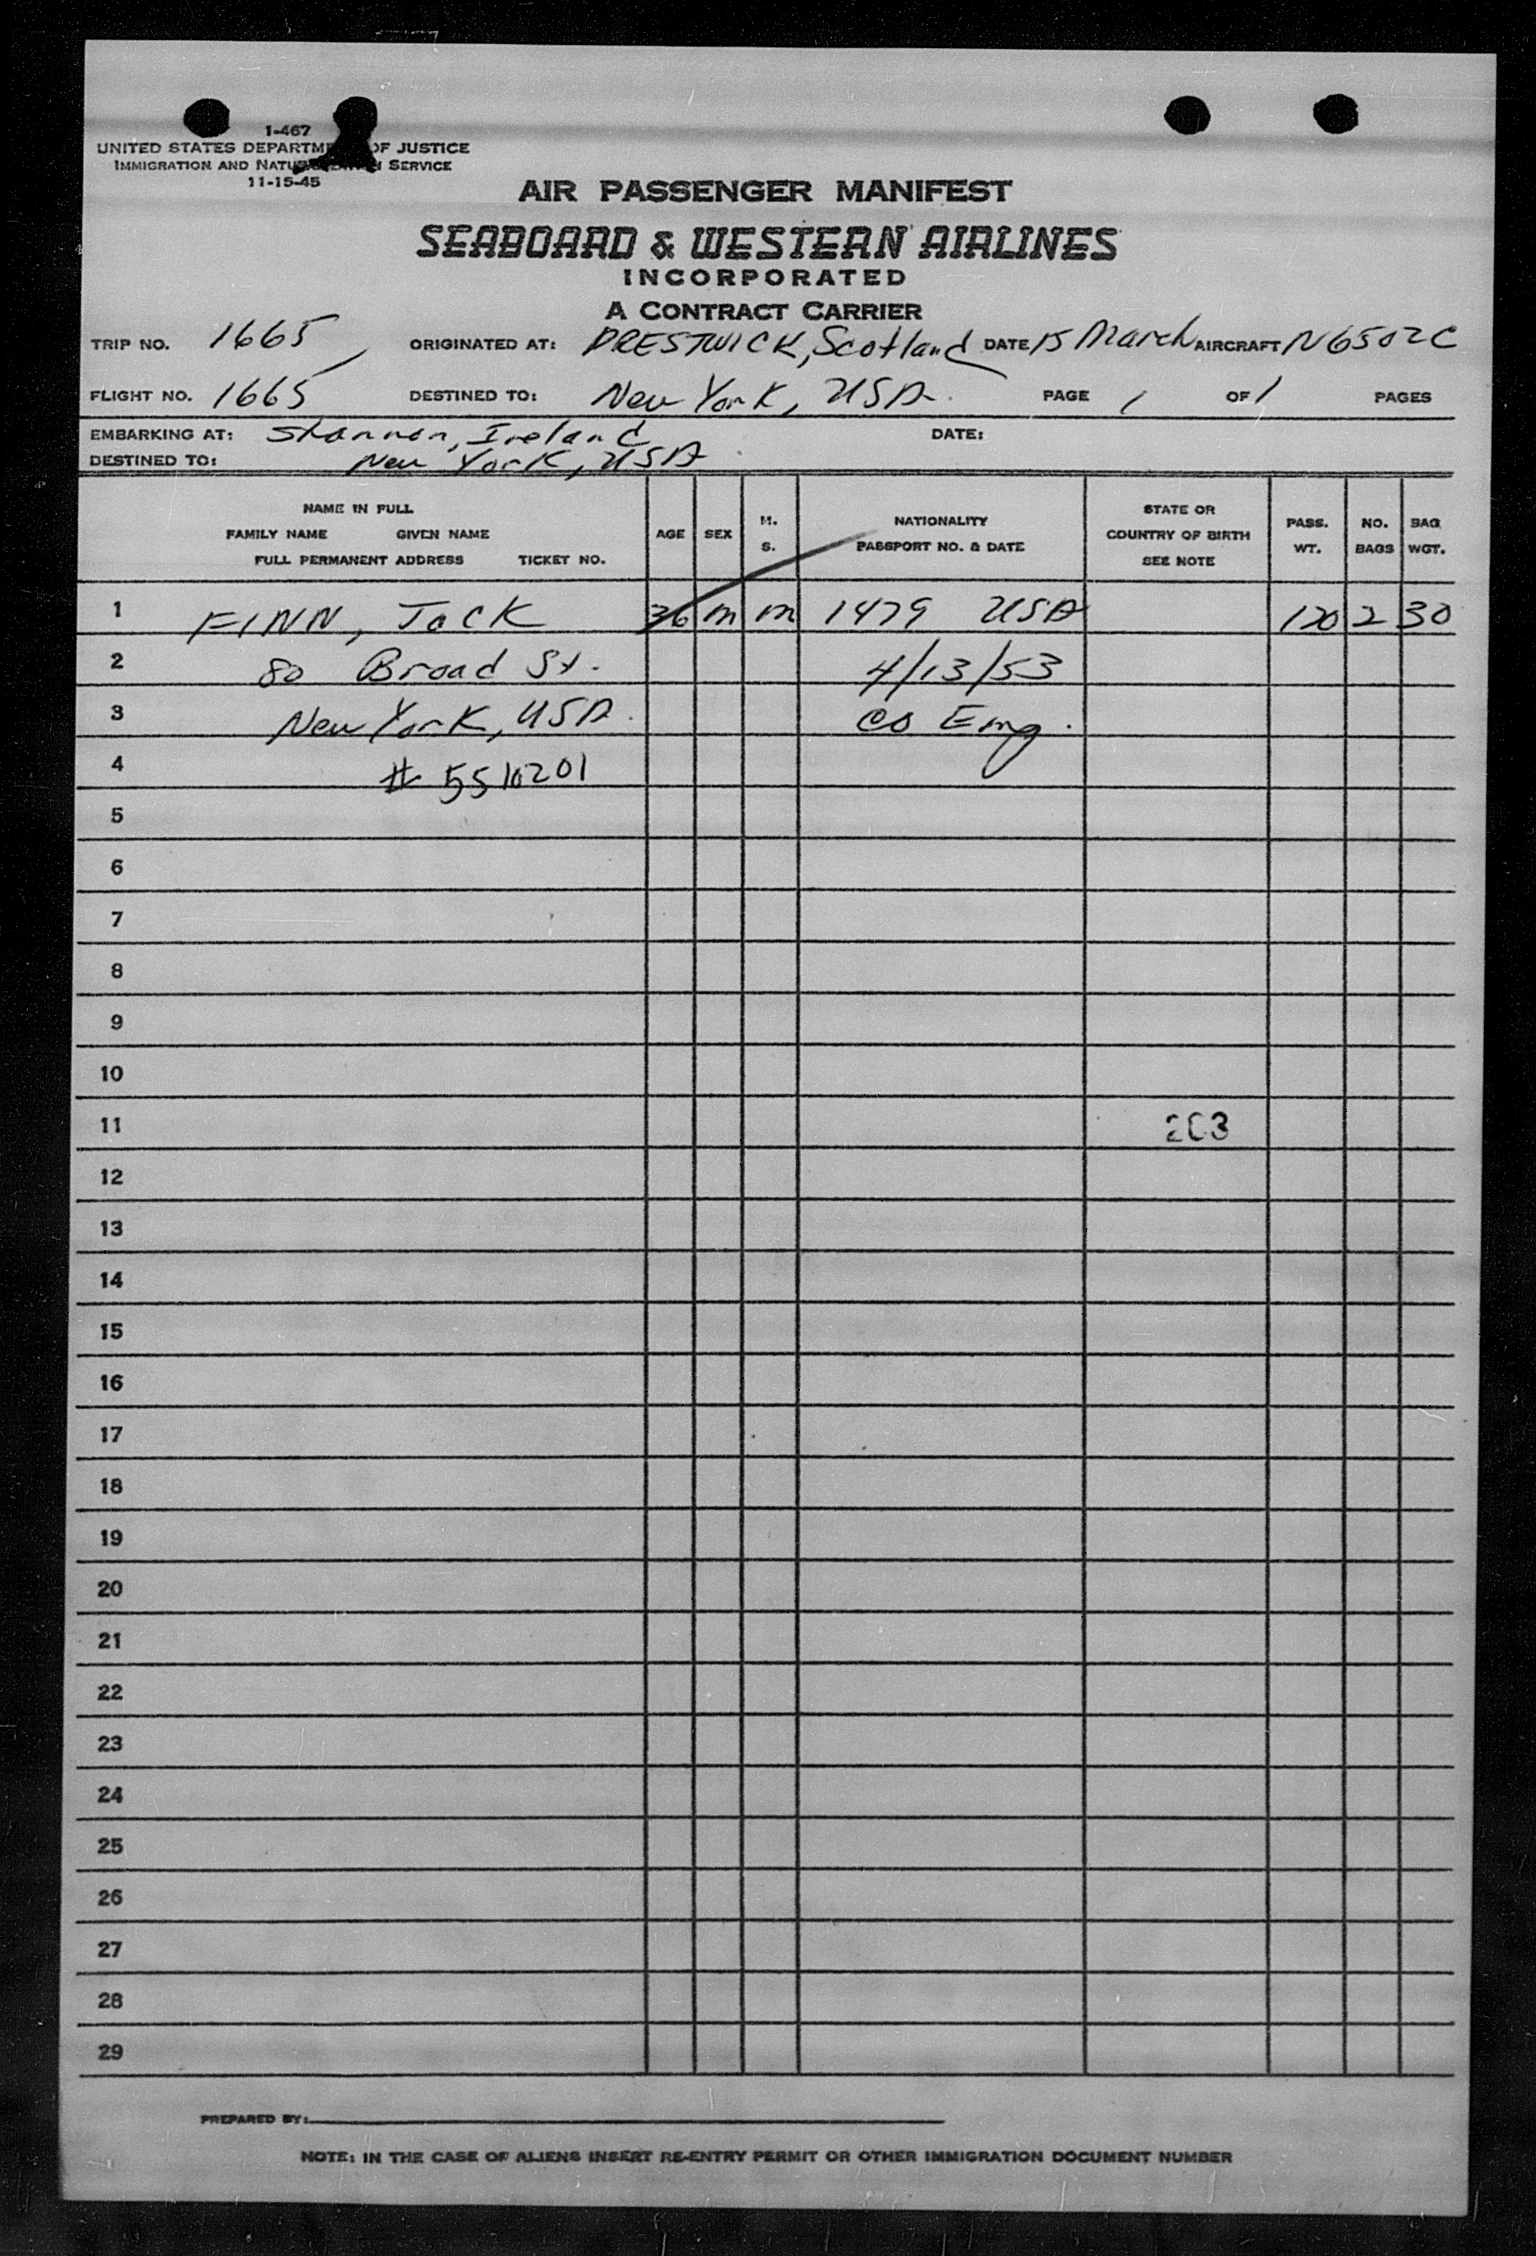 1-467
UNITED STATES DEPARTMENT OF JUSTICE
IMMIGRATION AND NATURALIZATION SERVICE
11-15-45
AIR PASSENGER MANIFEST
SEABOARD & WESTERN AIRLINES
INCORPORATED
A CONTRACT CARRIER
TRIP NO. 1665 ORIGINATED AT: PRESTWICK, Scotland DATE 15 March AIRCRAFT N6502C
FLIGHT NO. 1665 DESTINED TO: New York, USA. PAGE 1 OF 1 PAGES
EMBARKING AT: Shannon, Ireland DATE:
DESTINED TO: New York, USA
NAME IN FULL
FAMILY NAME GIVEN NAME
FULL PERMANENT ADDRESS TICKET NO.
AGE SEX M. S.
NATIONALITY
PASSPORT NO. & DATE
STATE OR
COUNTRY OF BIRTH
SEE NOTE
PASS. WT. NO. BAGS BAG WGT.
1 FINN, Jack 36 m m 1479 USA 120 2 30
2 80 Broad St. 4/13/53
3 New York, USA. CO Emg.
4 # 5510201
5
6
7
8
9
10
11 203
12
13
14
15
16
17
18
19
20
21
22
23
24
25
26
27
28
29
PREPARED BY:
NOTE: IN THE CASE OF ALIENS INSERT RE-ENTRY PERMIT OR OTHER IMMIGRATION DOCUMENT NUMBER